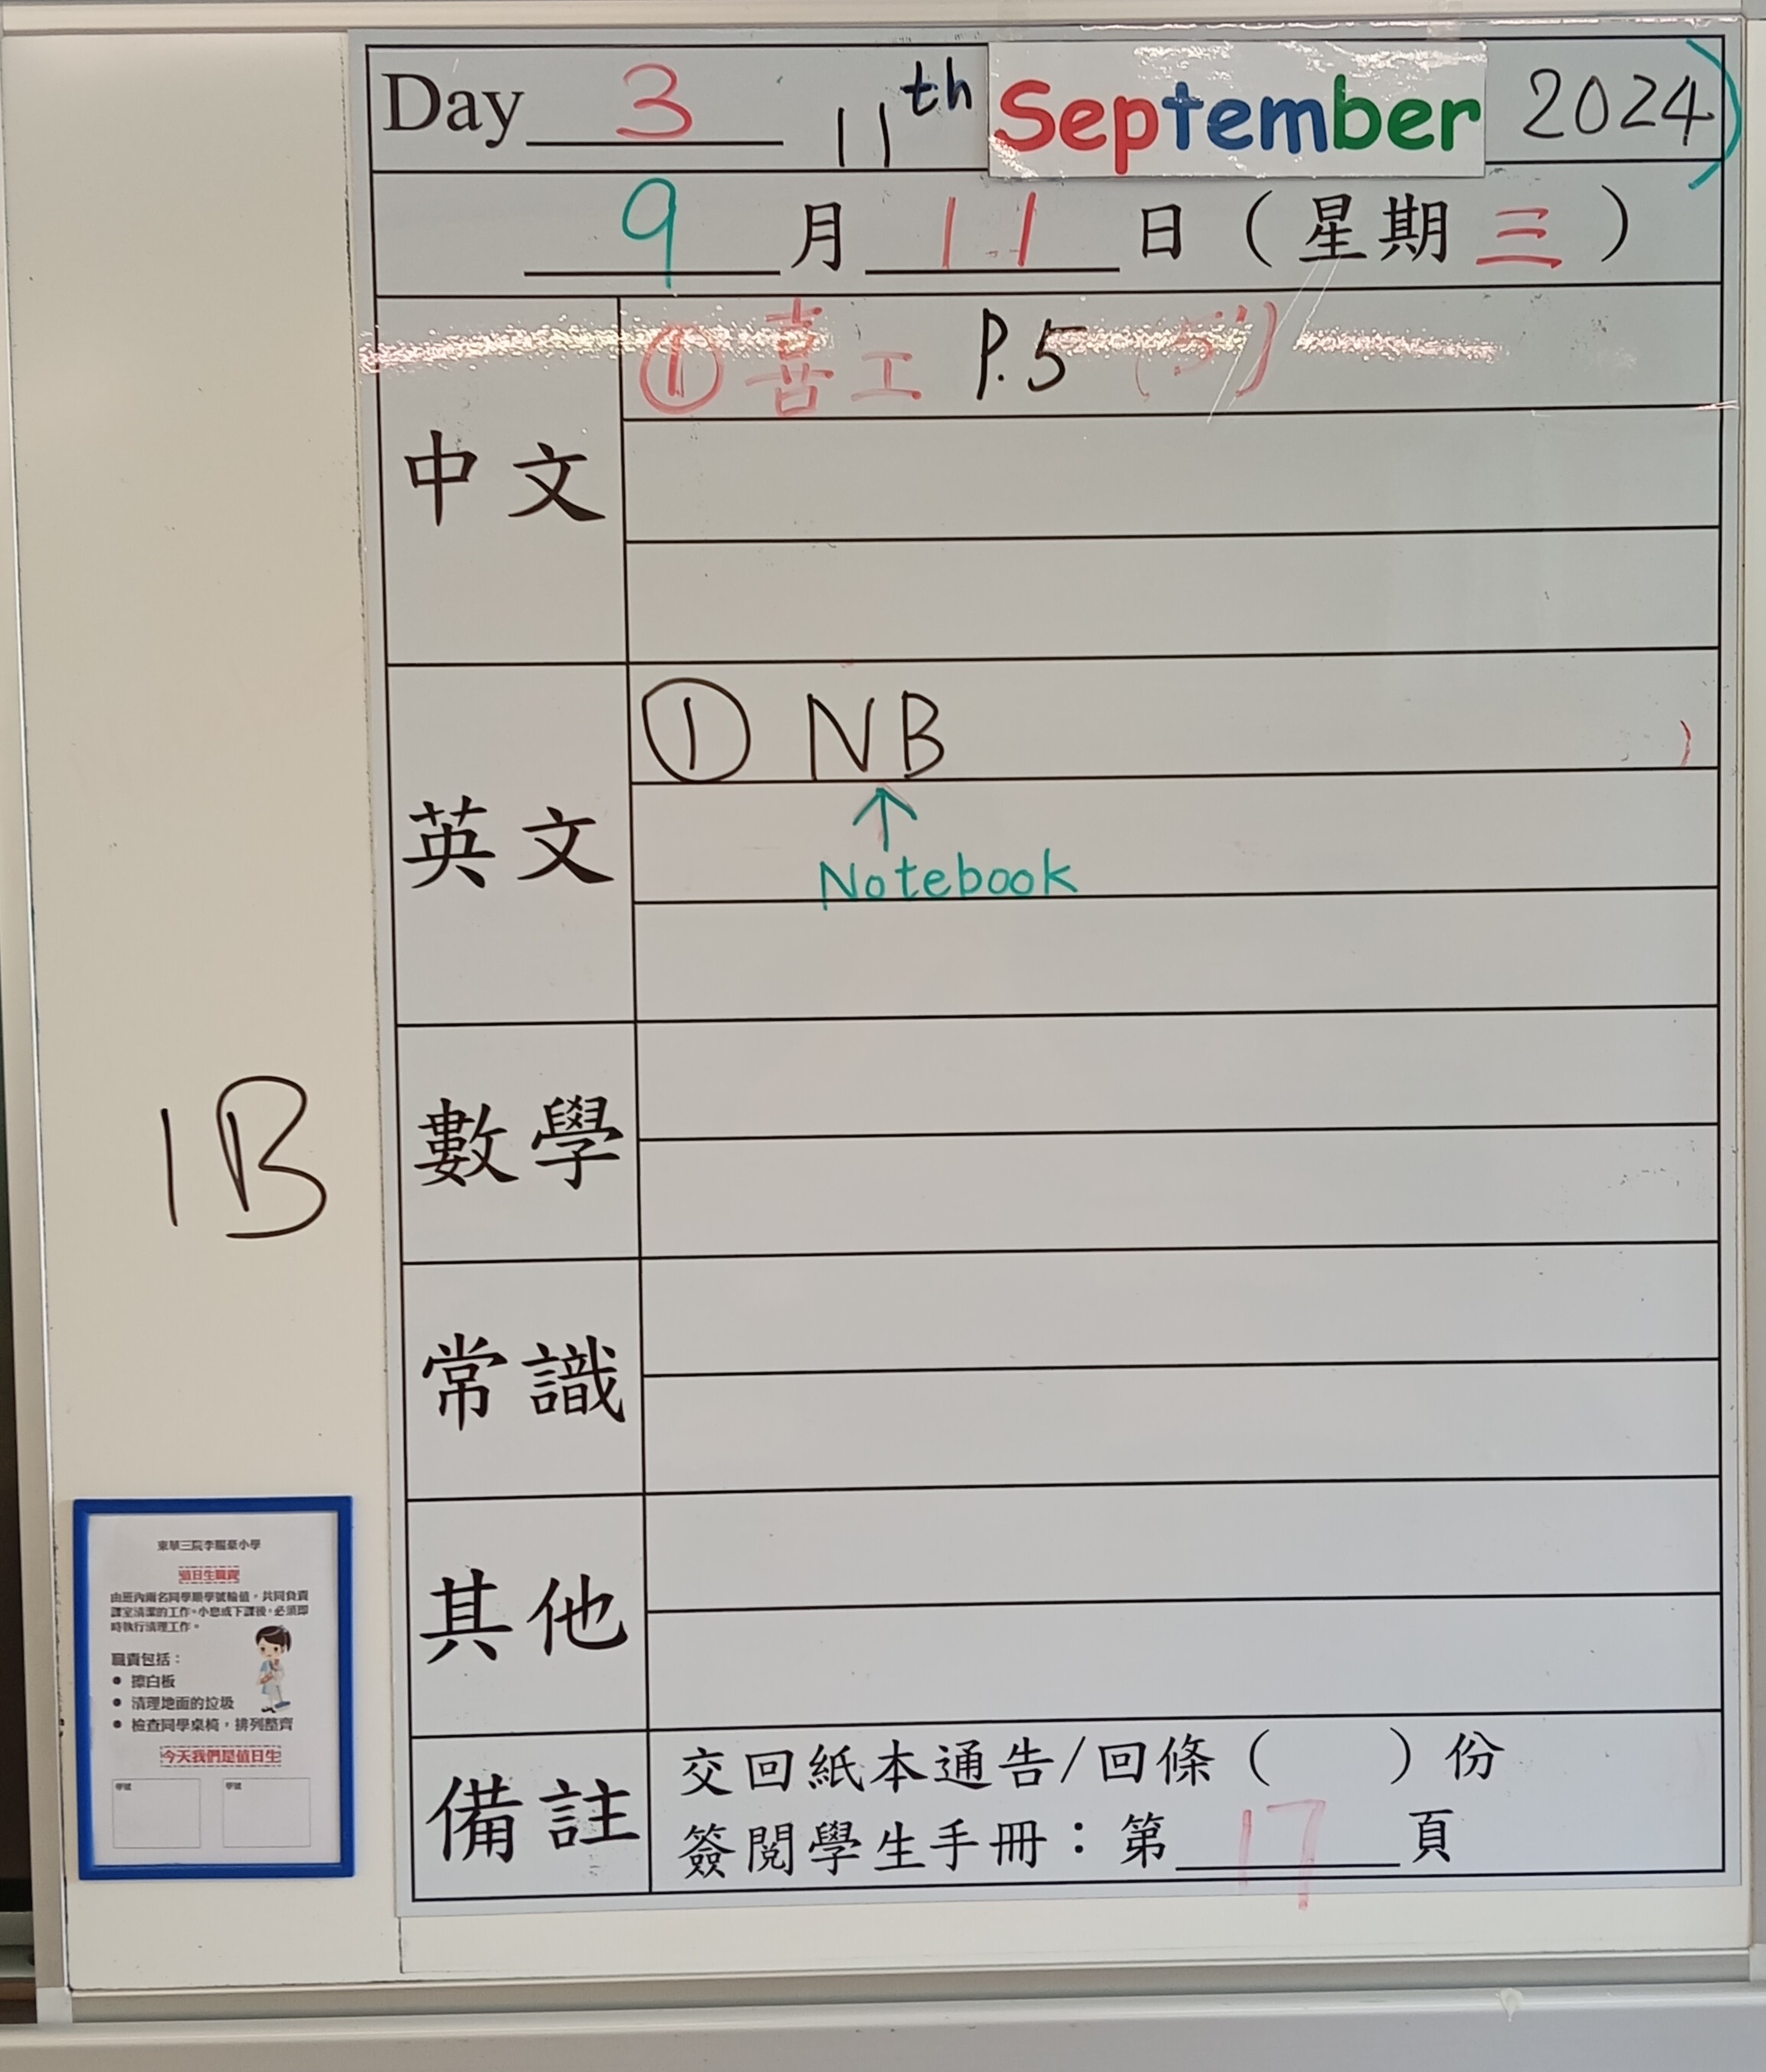 Day 3 11th September 2024)
9月11日（星期三）
中文
① 喜工 P.5 (5')
英文
① NB
↑
Notebook
數學
1B
常識
其他
備註
交回紙本通告/回條（ ）份
簽閱學生手冊：第17頁
東華三院李賜豪小學
值日生職責
由班內兩名同學順學號輪值，共同負責
課室清潔的工作。小息或下課後，必須即
時執行清理工作。
職責包括：
● 擦白板
● 清理地面的垃圾
● 檢查同學桌椅，排列整齊
今天我們是值日生
學號 學號